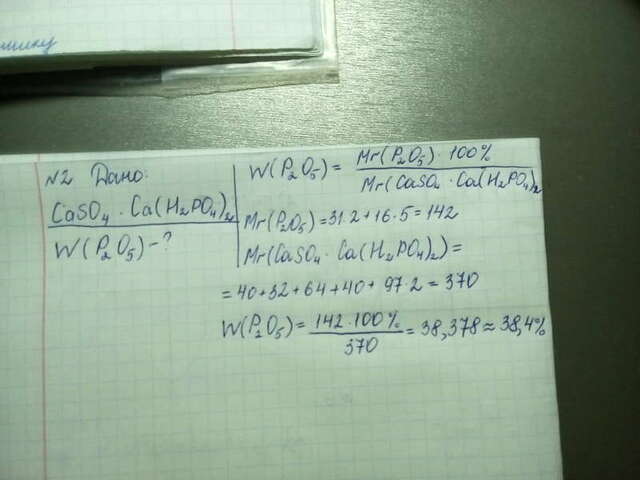 шику
N2 Дано:
CaSO₄ · Ca(H₂PO₄)₂
W(P₂O₅) - ?
W(P₂O₅) = Mr(P₂O₅) · 100%
Mr(CaSO₄ · Ca(H₂PO₄)₂
Mr(P₂O₅) = 31·2 + 16·5 = 142
Mr(CaSO₄ · Ca(H₂PO₄)₂) =
= 40 + 32 + 64 + 40 + 97·2 = 370
W(P₂O₅) = 142·100% = 38,378 ≈ 38,4%
370